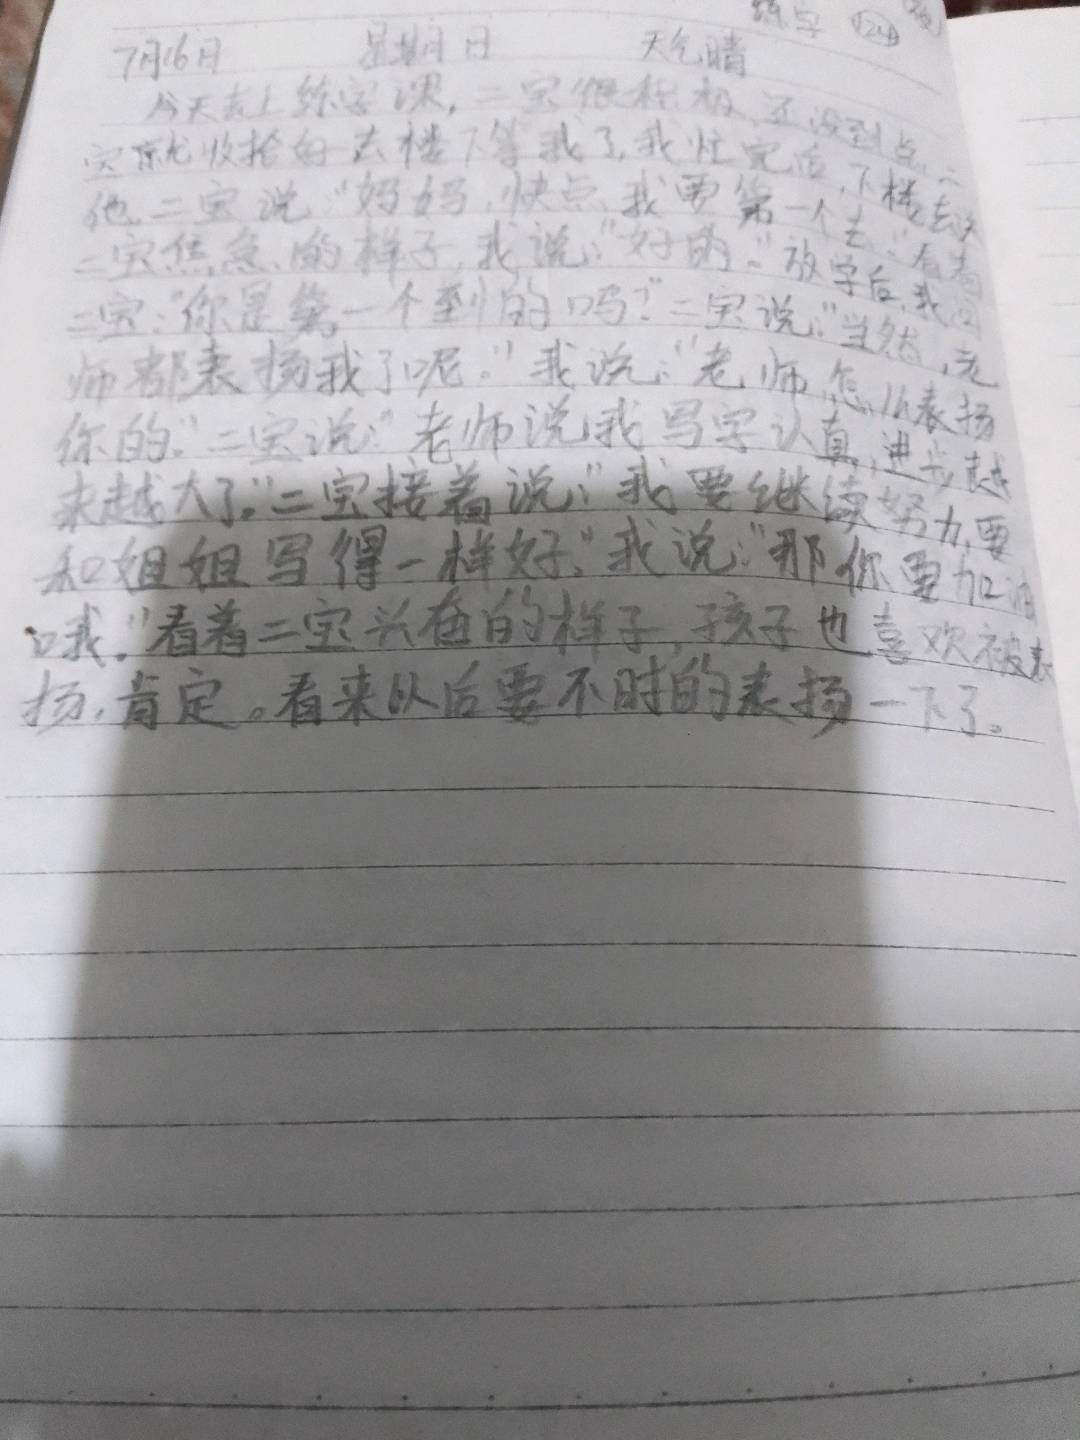 练字 (24)
7月16日 星期日 天气晴
今天去上练字课,二宝很积极,还没到点,二
宝就收拾好去楼下等我了,我忙完后,下楼去送
他,二宝说:“妈妈,快点,我要第一个去。”看着
二宝焦急的样子,我说:“好的。”放学后,我问
二宝:“你是第一个到的吗?”二宝说:“当然,老
师都表扬我了呢。”我说:“老师怎么表扬
你的。”二宝说:“老师说我写字认真,进步越
来越大了。”二宝接着说:“我要继续努力,要
和姐姐写得一样好。”我说:“那你要加油
哦。”看着二宝兴奋的样子,孩子也喜欢被表
扬,肯定。看来以后要不时的表扬一下了。